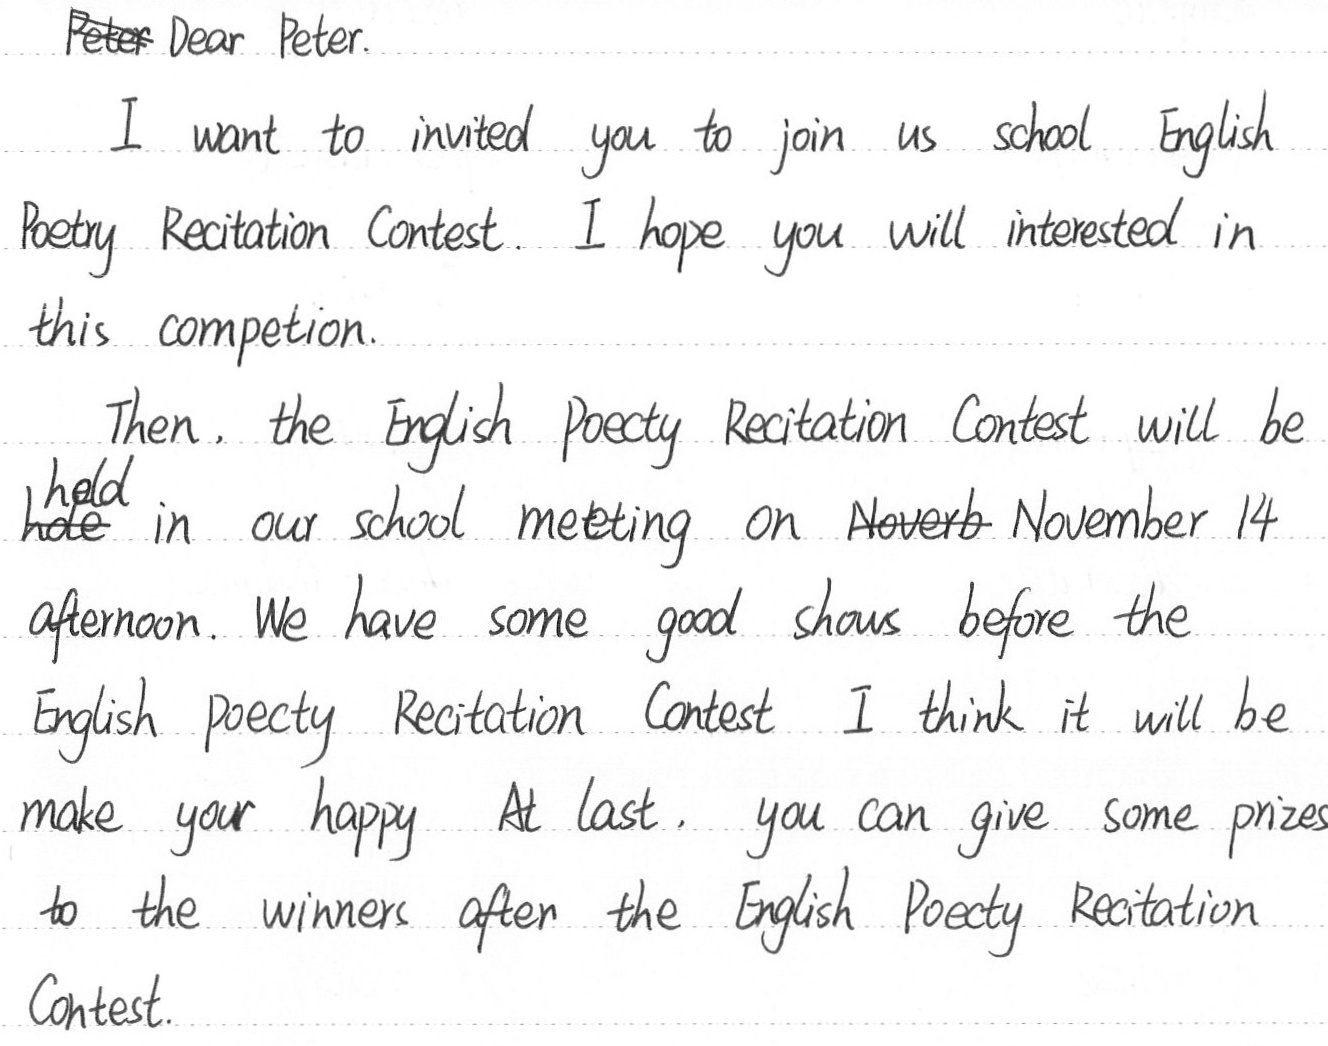 Dear Peter.
I want to invited you to join us school English
Poetry Recitation Contest. I hope you will interested in
this competion.
Then, the English Poecty Recitation Contest will be
held
in our school meeting on November 14
afternoon. We have some good shows before the
English poecty Recitation Contest I think it will be
make your happy At last, you can give some prizes
to the winners after the English Poecty Recitation
Contest.